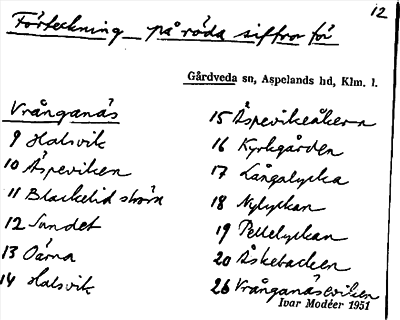 12
Förteckning på röda siffror för
Gårdveda sn, Aspelands hd, Klm. l.
Vrånganäs
9 Halsvik
10 Äspeviken
11 Blackelidström
12 Sundet
13 Öarna
14 Halsvik
15 Äspevikeåkern
16 Kyrkgården
17 Långalycka
18 Nylyckan
19 Pellelyckan
20 Åskebacken
26 Vrånganäsviken
Ivar Modéer 1951